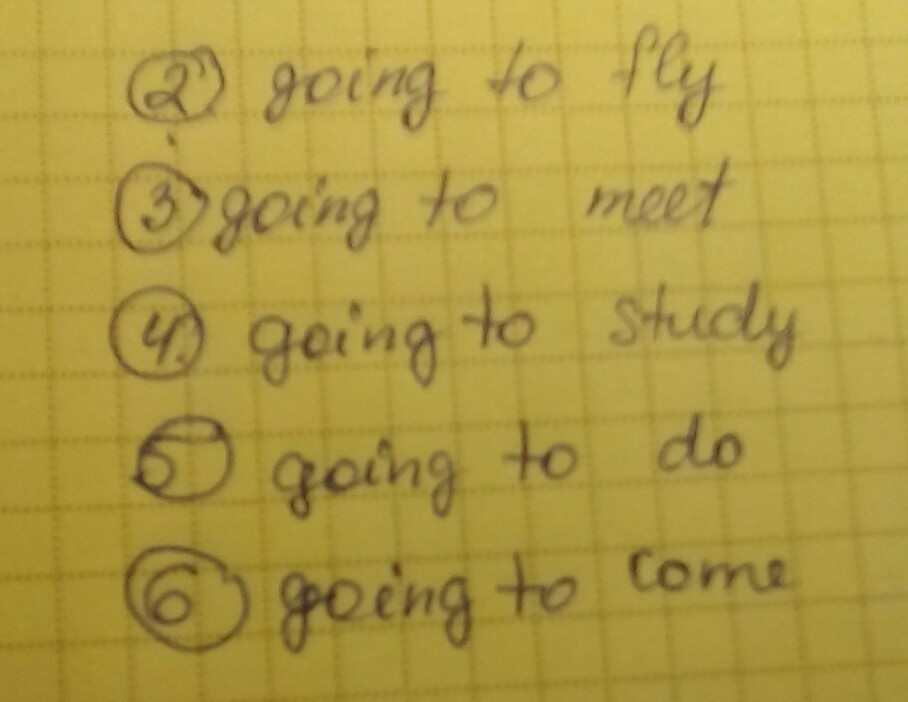 2 going to fly
3 going to meet
4. going to study
5 going to do
6 going to come